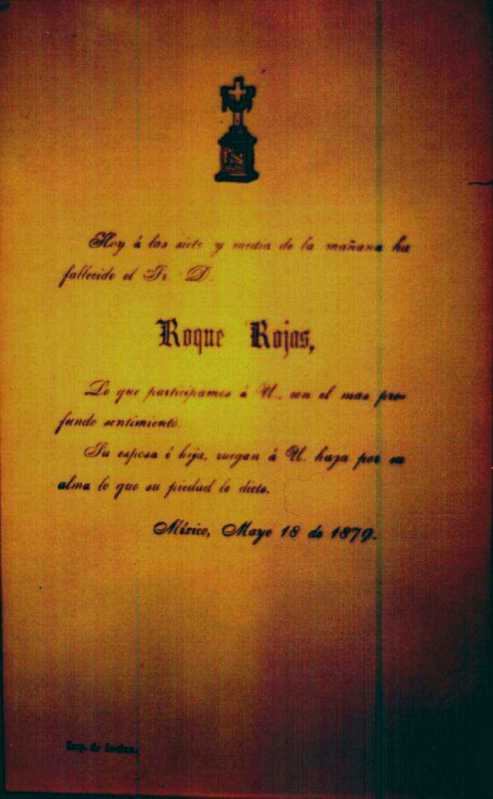 Hoy á las siete y media de la mañana ha
fallecido el Sr. D.
Roque Rojas,
Lo que participamos á U., con el mas pro-
fundo sentimiento.
Su esposa é hija, ruegan á U. haga por su
alma lo que su piedad le dicte.
México, Mayo 18 de 1879.
Imp. de